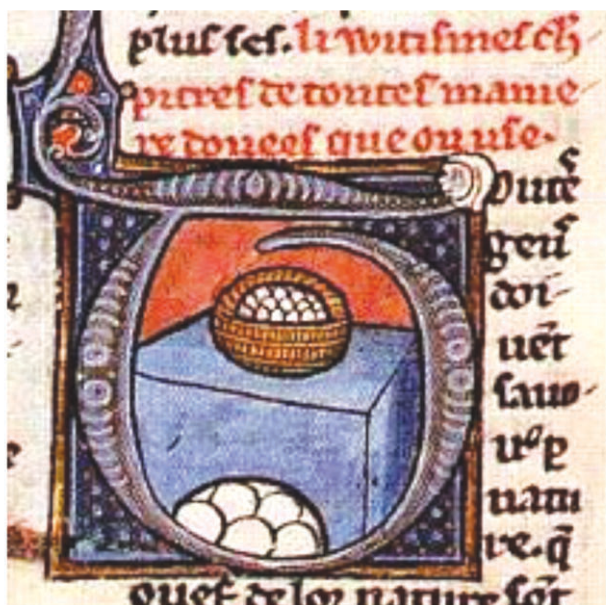 pluſ ſeſ. li witiſmeſ ch̄
pitreſ de touteſ manie
re doueeſ que on uſe.
Touteſ
gen̄ſ
doi-
uēt
ſauo-
ꝑ
natu
re. q̄
oueſ de lor nature ſōt